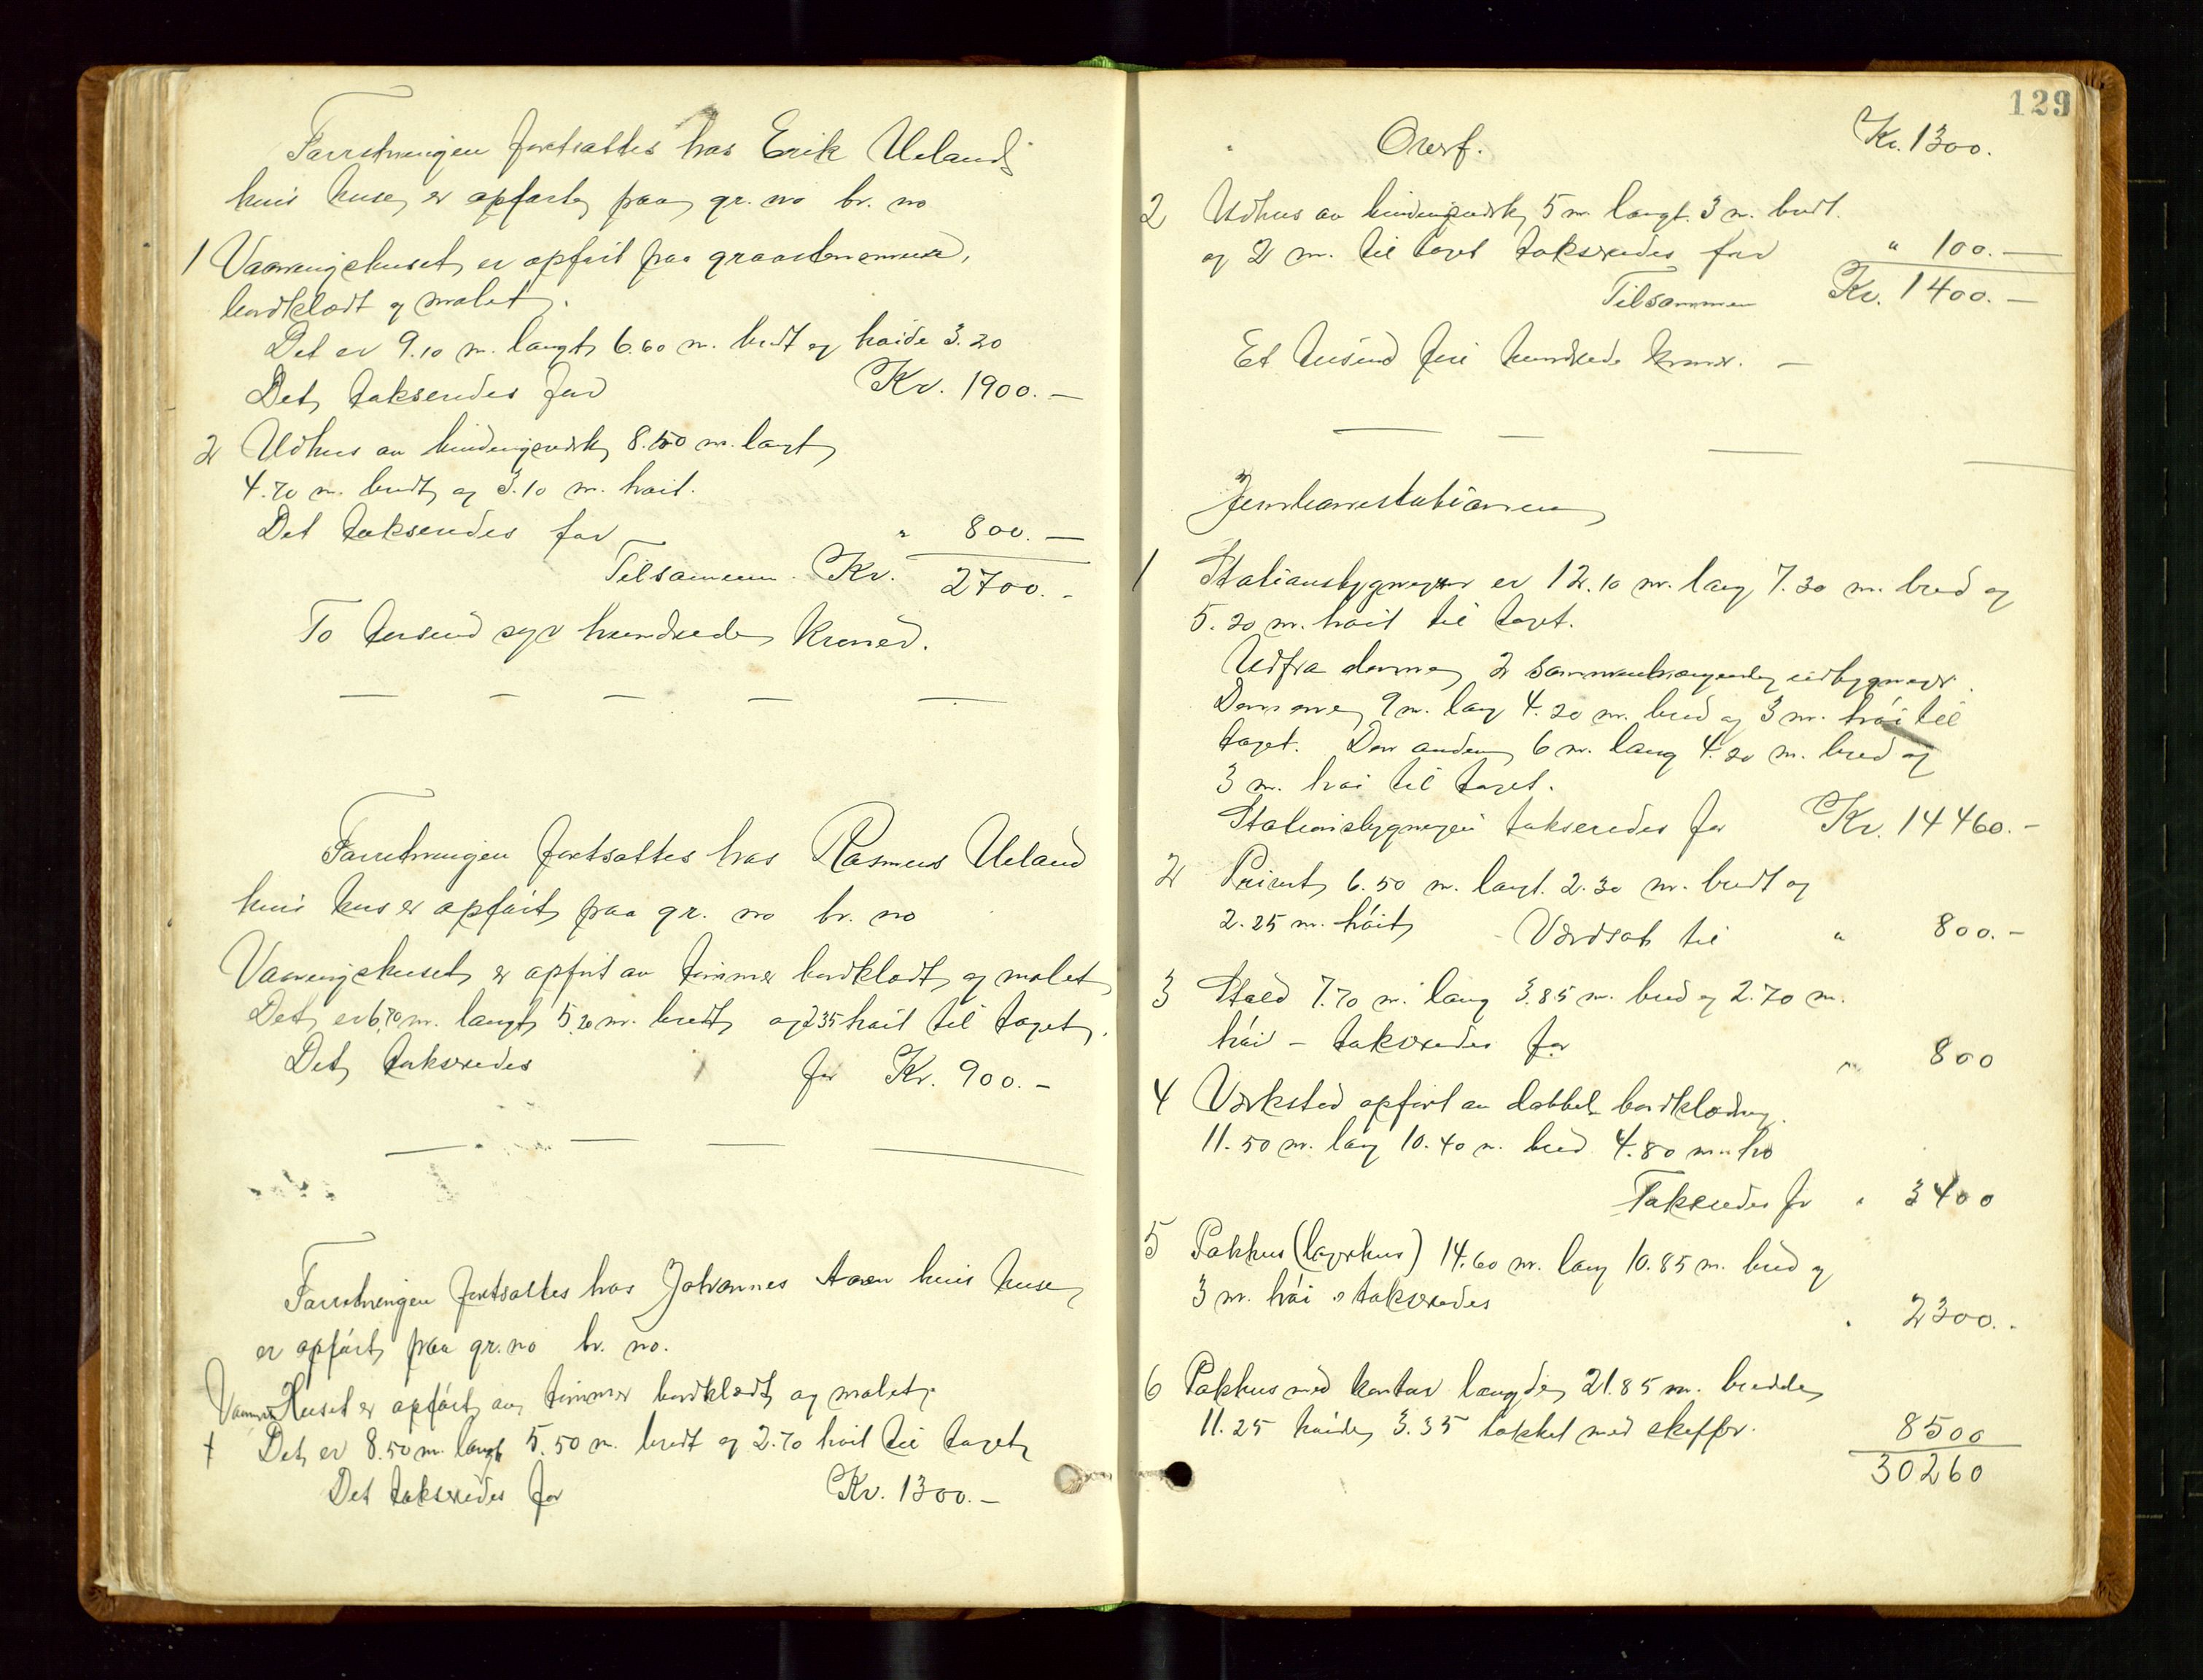 Forretningen fortsattes hos Erik Ueland
hvis huse er opført paa gr. no br. no
1 Vaaningshuset er opført paa graastensmur,
bordklædt og malet.
Det er 9.10 m. langt 6.60 m. bredt og høide 3.20
Det takseredes for Kr. 1900.—
2 Udhus av bindingsverk 8.50 m. langt
4.70 m. bredt og 3.10 m. høit.
Det takseredes for " 800.—
Tilsammen. Kr. 2700.-
To tusend syv hundrede kroner.
Forretningen fortsattes hos Rasmus Ueland
hvis hus er opført paa gr. no br. no
Vaaningshuset er opført av tømmer bordklædt og malet
Det er 6.70 m. langt 5.20 m. bredt og 2.35 høit til taget.
Det takseredes for Kr. 900.-
Forretningen fortsattes hos Johannes hvis huse
er opført paa gr. no br. no.
Huset er opført av tømmer bordklædt og malet.
1 Det er 8.50 m. langt 5.50 m. bredt og 2.70 høit til taget
Det takseredes for Kr. 1300.-
129
Overf. Kr. 1300.
2 Udhus av bindingsverk 5 m. langt. 3 m. bredt.
og 2 m. til taget takseredes for " 100.—
Tilsammen Kr. 1400.—
Et tusend fire hundrede kroner. —
Jernbanestationen
1 Stationsbygningen er 12.10 m. lang 7.30 m. bred og
5.20 m. høit til taget.
Udfra denne 2 sammenhængende udbygninger.
Den ene 9 m. lang 4.20 m. bred og 3 m. høi til
taget. Den anden 6 m. lang 4.20 m. bred og
3 m. høi til taget.
Stationsbygningen takseredes for Kr. 14460.-
2 Privet 6.50 m. langt. 2.30 m. bredt og
2.25 m. høit Værdsat til " 800.-
3 Stald 7.70 m. lang 3.85 m. bred og 2.70 m.
høi - takseredes for " 800
4 Verksted opført av dobbel bordklædning.
11.50 m. lang 10.40 m. bred 4.80 m. hø
Takseredes for " 3400
5 Pakhus (lagerhus) 14.60 m. lang 10.85 m. bred og
3 m. høi takseredes " 2300.-
6 Pakhus med kontor længde 21.85 m. bredde
11.25 høide 3.35 takket med skiffer. 8500
30260